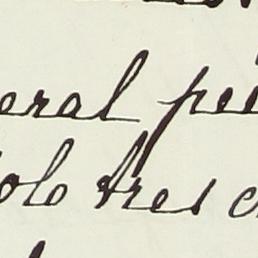 eral pei
olo tres c